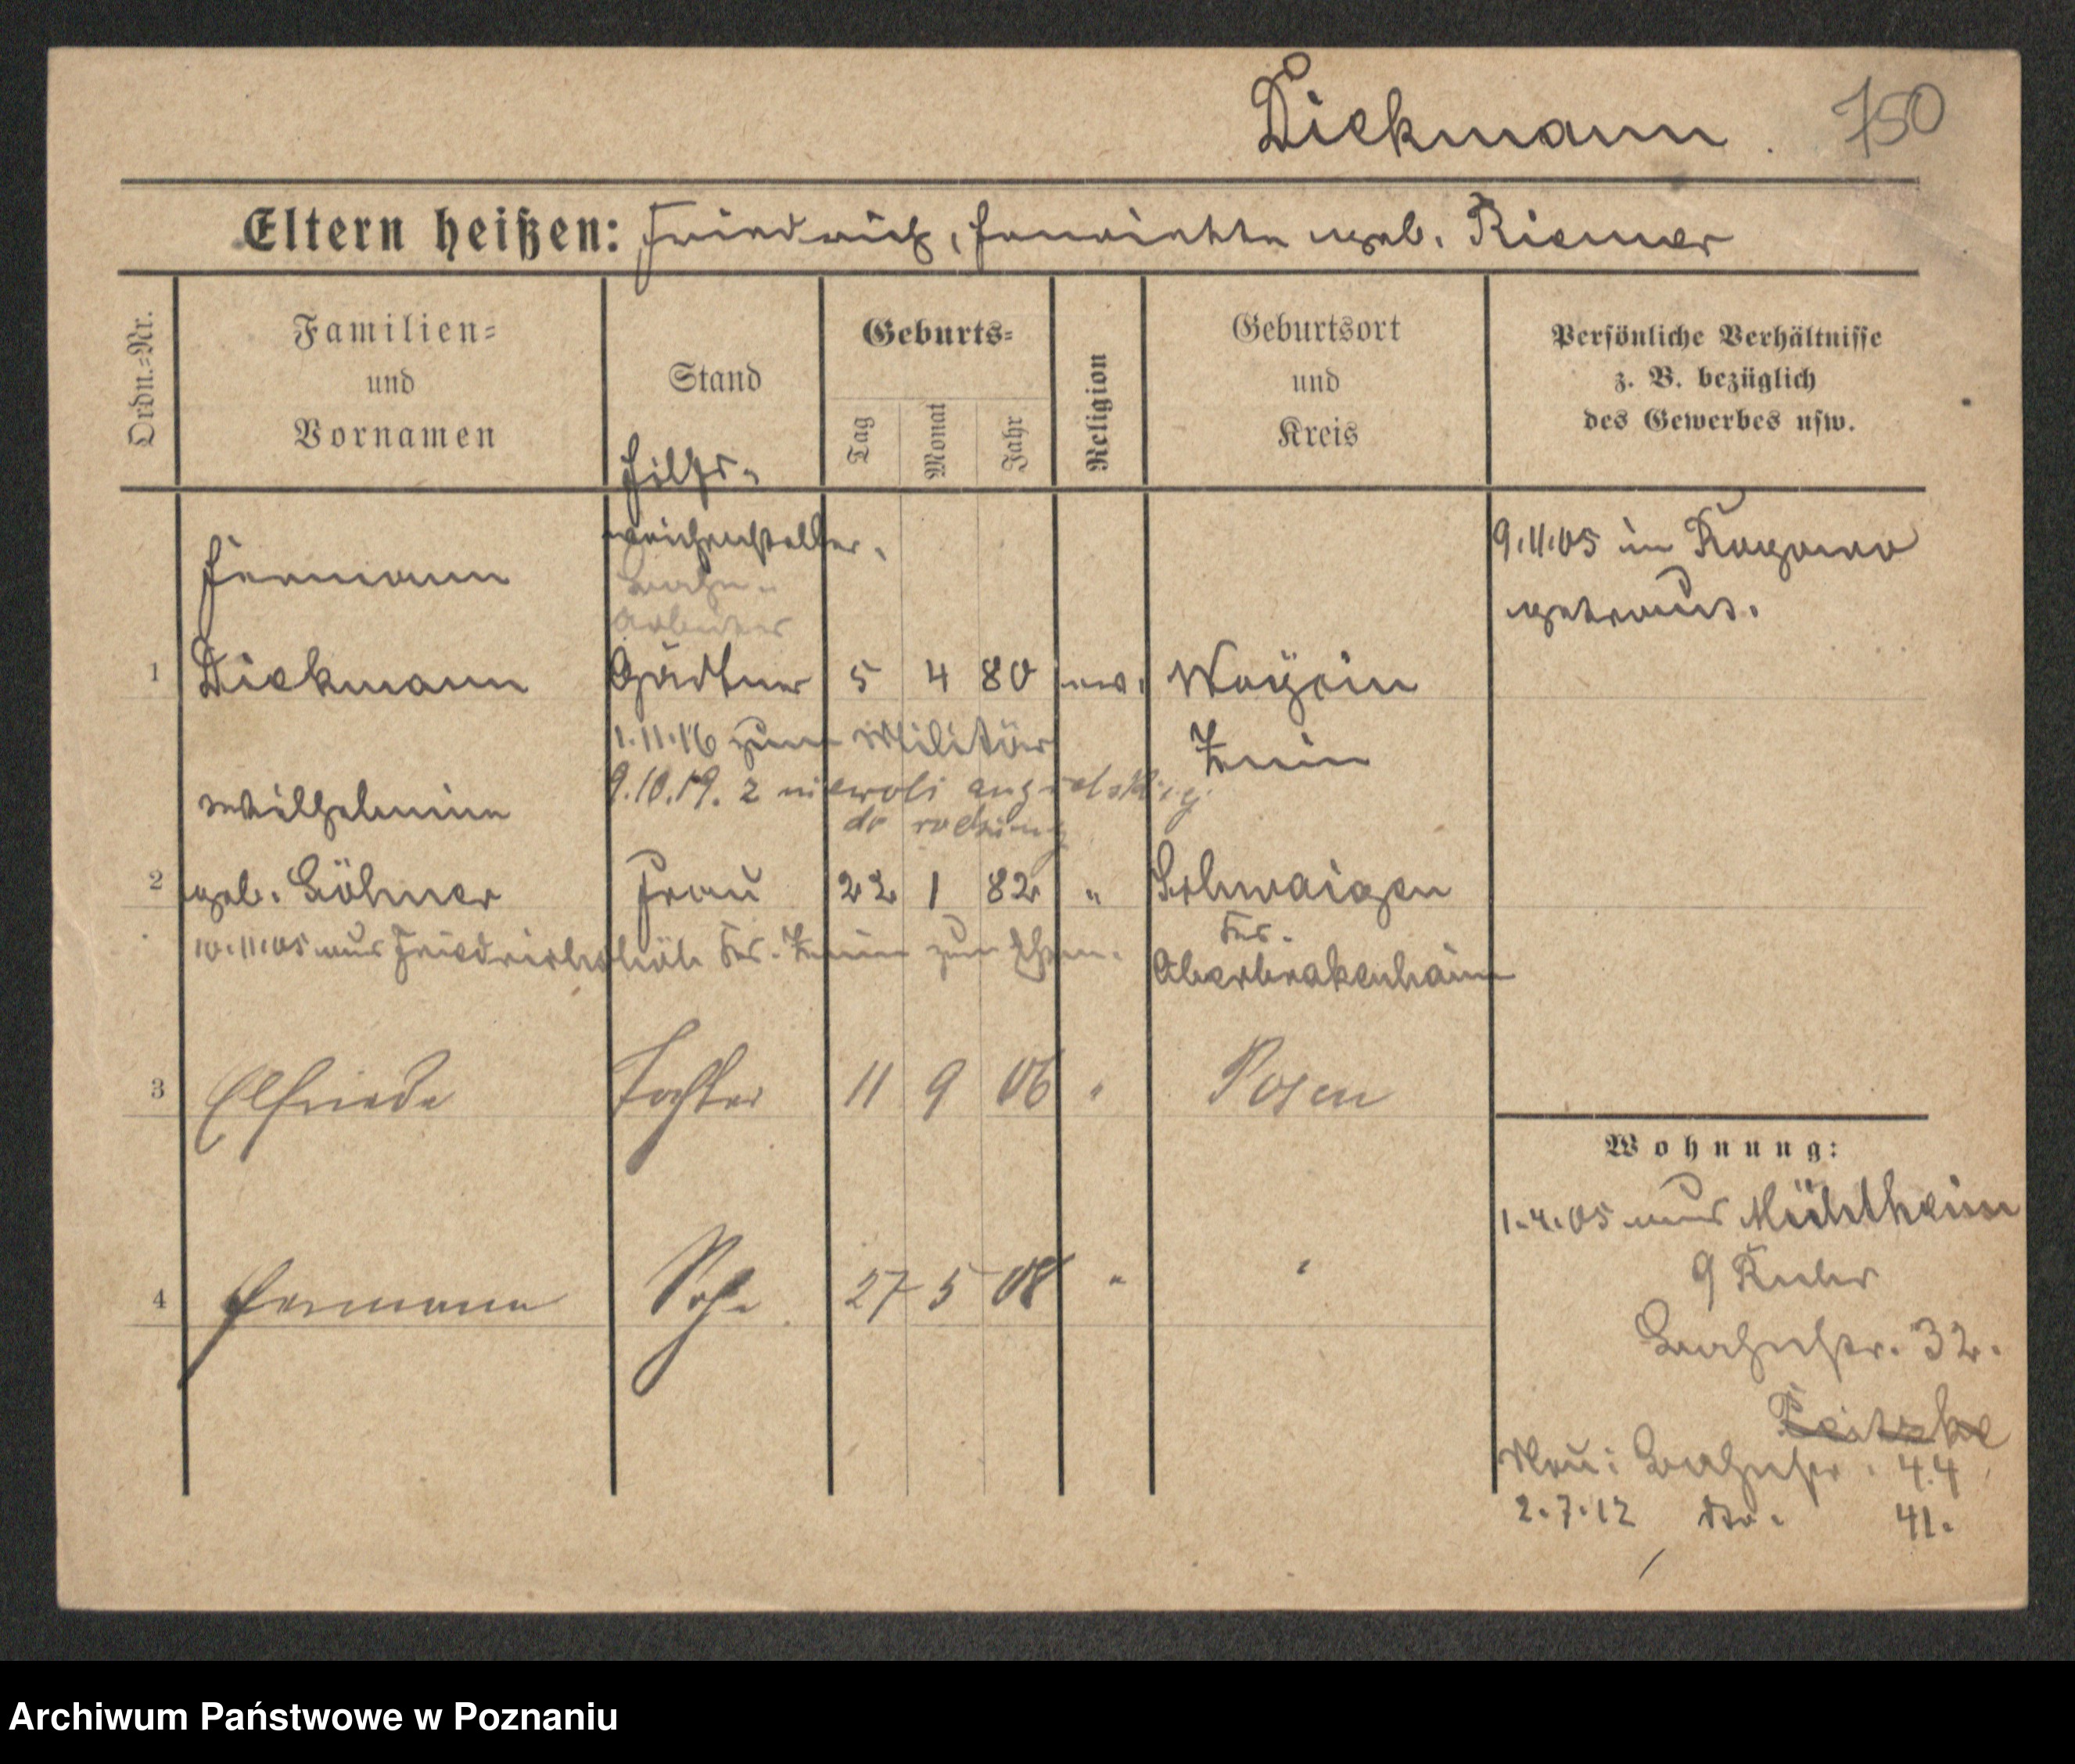 Diekmann. 750
Eltern heißen: Friedrich, Henriette geb. Riemer
Ordn.-Nr.
Familien-
und
Vornamen
Stand
Geburts-
Tag
Monat
Jahr
Religion
Geburtsort
und
Kreis
Persönliche Verhältnisse
z. B. bezüglich
des Gewerbes usw.
Hilfs-
weichensteller.
Bahn-
arbeiter
Hermann
9.11.05 in Rogowo
getraut.
1 Diekmann 5 4 80 ev. Woycin
1.11.16 zum Militär
Znin
9.10.19. z niewoli angielskiej
do rodziny
Wilhelmine
2 geb. Böhmer Frau 22 1 82 " Schwaigen
10.11.05 aus Friedrichshöh Krs. Znin zum Ehem.
Krs.
3 Elfriede Tochter 11 9 06 " Posen
4 Hermann Sohn 27 5 08 " "
Wohnung:
1.4.05 aus Mühltheim
9
Bahnstr. 32.
Neu: Bahnstr. 44
2.7.12 dto. 41.
Archiwum Państwowe w Poznaniu